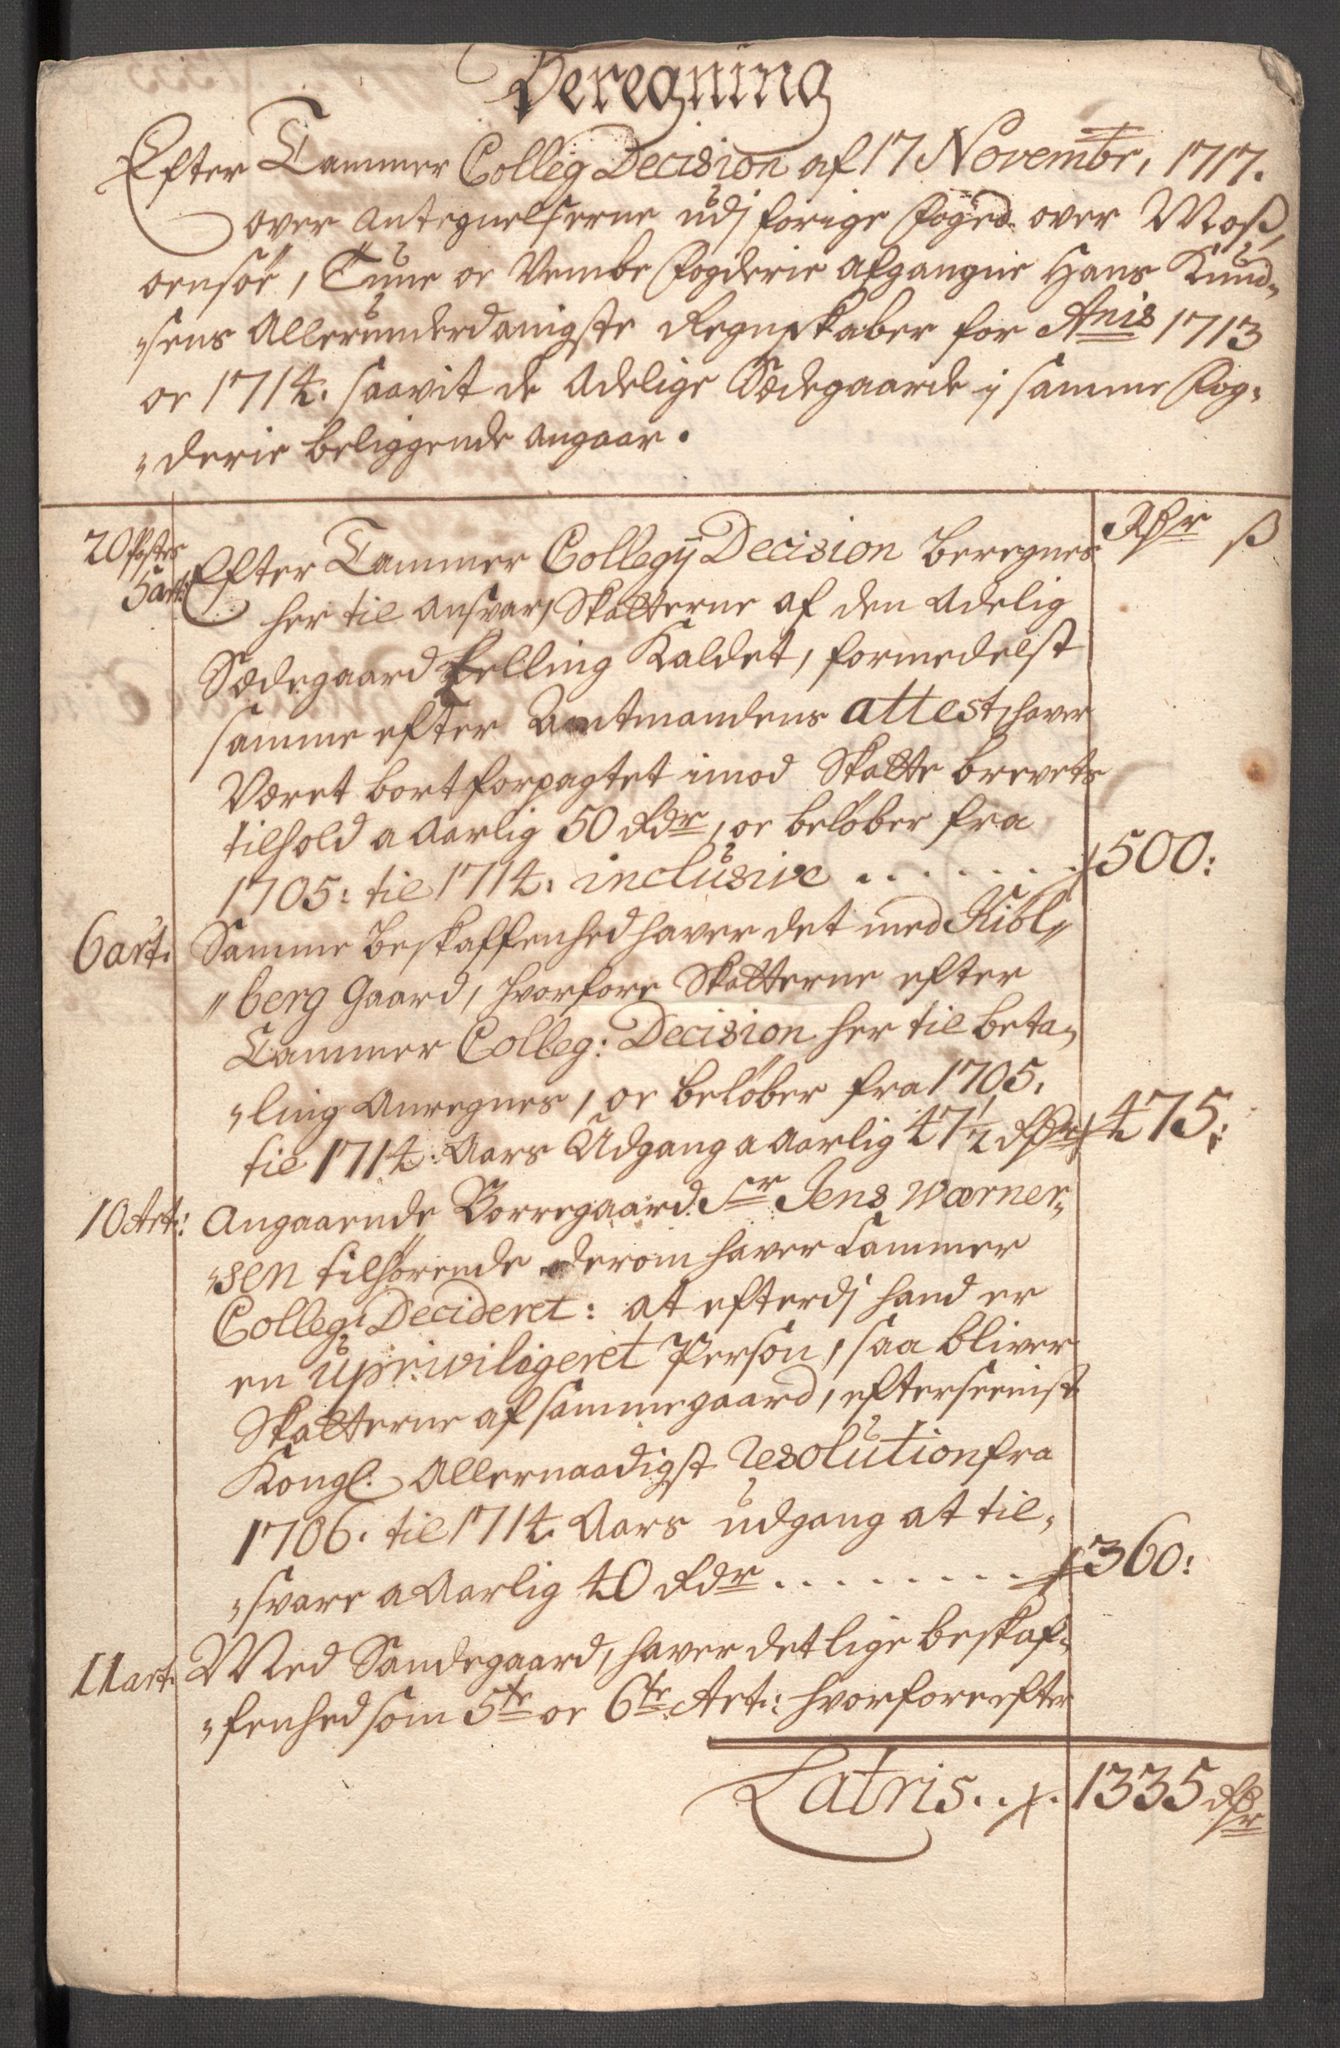 Beregning
Efter Cammer Colleg Decision af 17 Novembr, 1717.
over Antegnelserne udj forige Foged over Moss,
Onsöe, Tune oc Vembe Fogderie afgangne Hans Knud-
"sens Allerunderdanigste Regnskaber for Anis 1713
oc 1714. saavit de Adelige Sædegaarde i samme Fog-
"derie beliggende angaar.
Rdr ß
20 Postes
5 art:
Efter Cammer Collegij Decision beregnes
her til Ansvar, Skatterne af den Adelig
Sædegaard Kelling Kaldet, formedelst
samme efter Amtmandens attest haver
Været bortforpagtet imod Skatte brevets
tilhold a Aarlig 50 Rdr, oc beløber fra
1705: til 1714. inclusive . . . . . . 500:
6 art. Samme Beskaffenhed haver det med Kibl"
"berg Gaard, hvorfore Skatterne efter
Cammer Colleg: Decision her til beta-
"ling Anregnes, oc beløber fra 1705.
til 1714: Aars Udgang a Aarlig 47 1/2 Rdr 475:
10 Art: Angaaende Borregaard Sr Jens Wærner-
"sen tilhørende derom haver Cammer
Colleg: Decideret: at efterdj hand er
en upriviligeret Person, saa bliver
Skatterne af samme gaard, efter seeniste
Kongl: Allernaadigst Resolution fra
1706. til 1714. Aars udgang at til-
"svare a Aarlig 40 Rdr . . . . . . . . 360:
11 art. Med Sandegaard, haver det lige beskaf-
"fenhed som 5te oc 6te Art: hvorfore efter
Latris . . 1335 Rdr